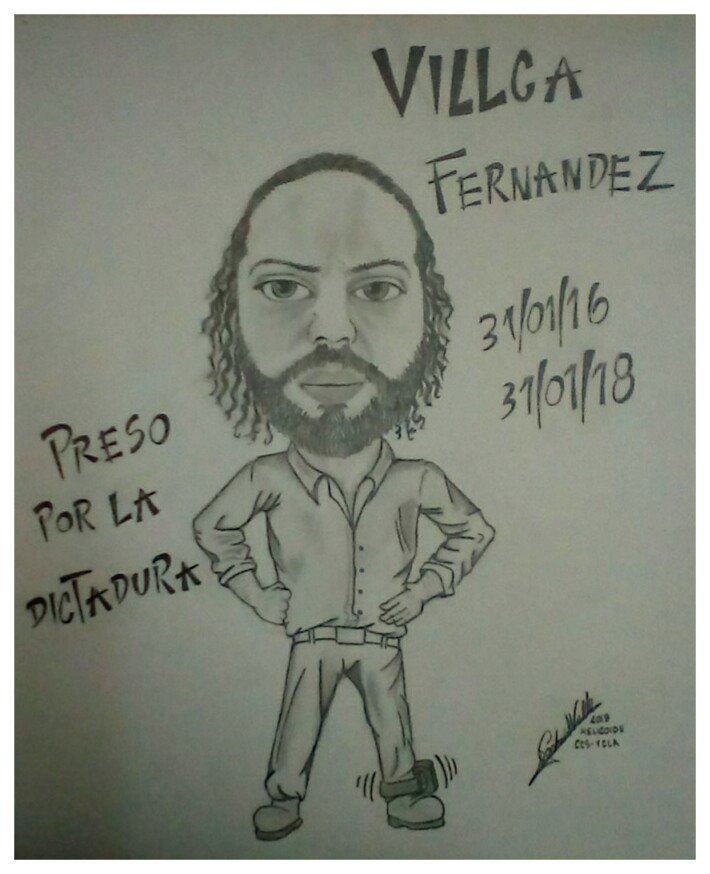 VILLCA
FERNANDEZ
31/01/16
31/01/18
PRESO
POR LA
DICTADURA
2018
HELICOIDE
CCS-VZLA